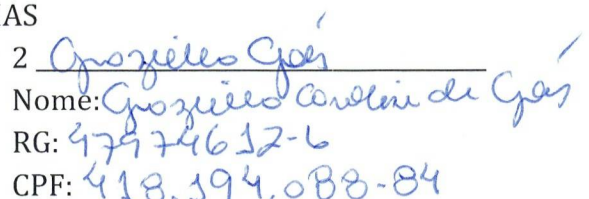 IAS
2 Graziella Goés
Nome: Graziella Caroline de Goés
RG: 47974612-6
CPF: 418.194.088-84